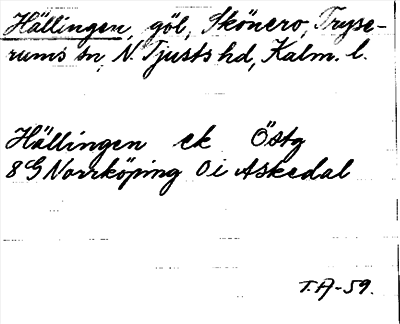 Hällingen, göl, Skönero, Tryse-
rums sn, N. Tjusts hd, Kalm. l.
Hällingen ek Östg
8G Norrköping 0i Askedal
T.A-59.